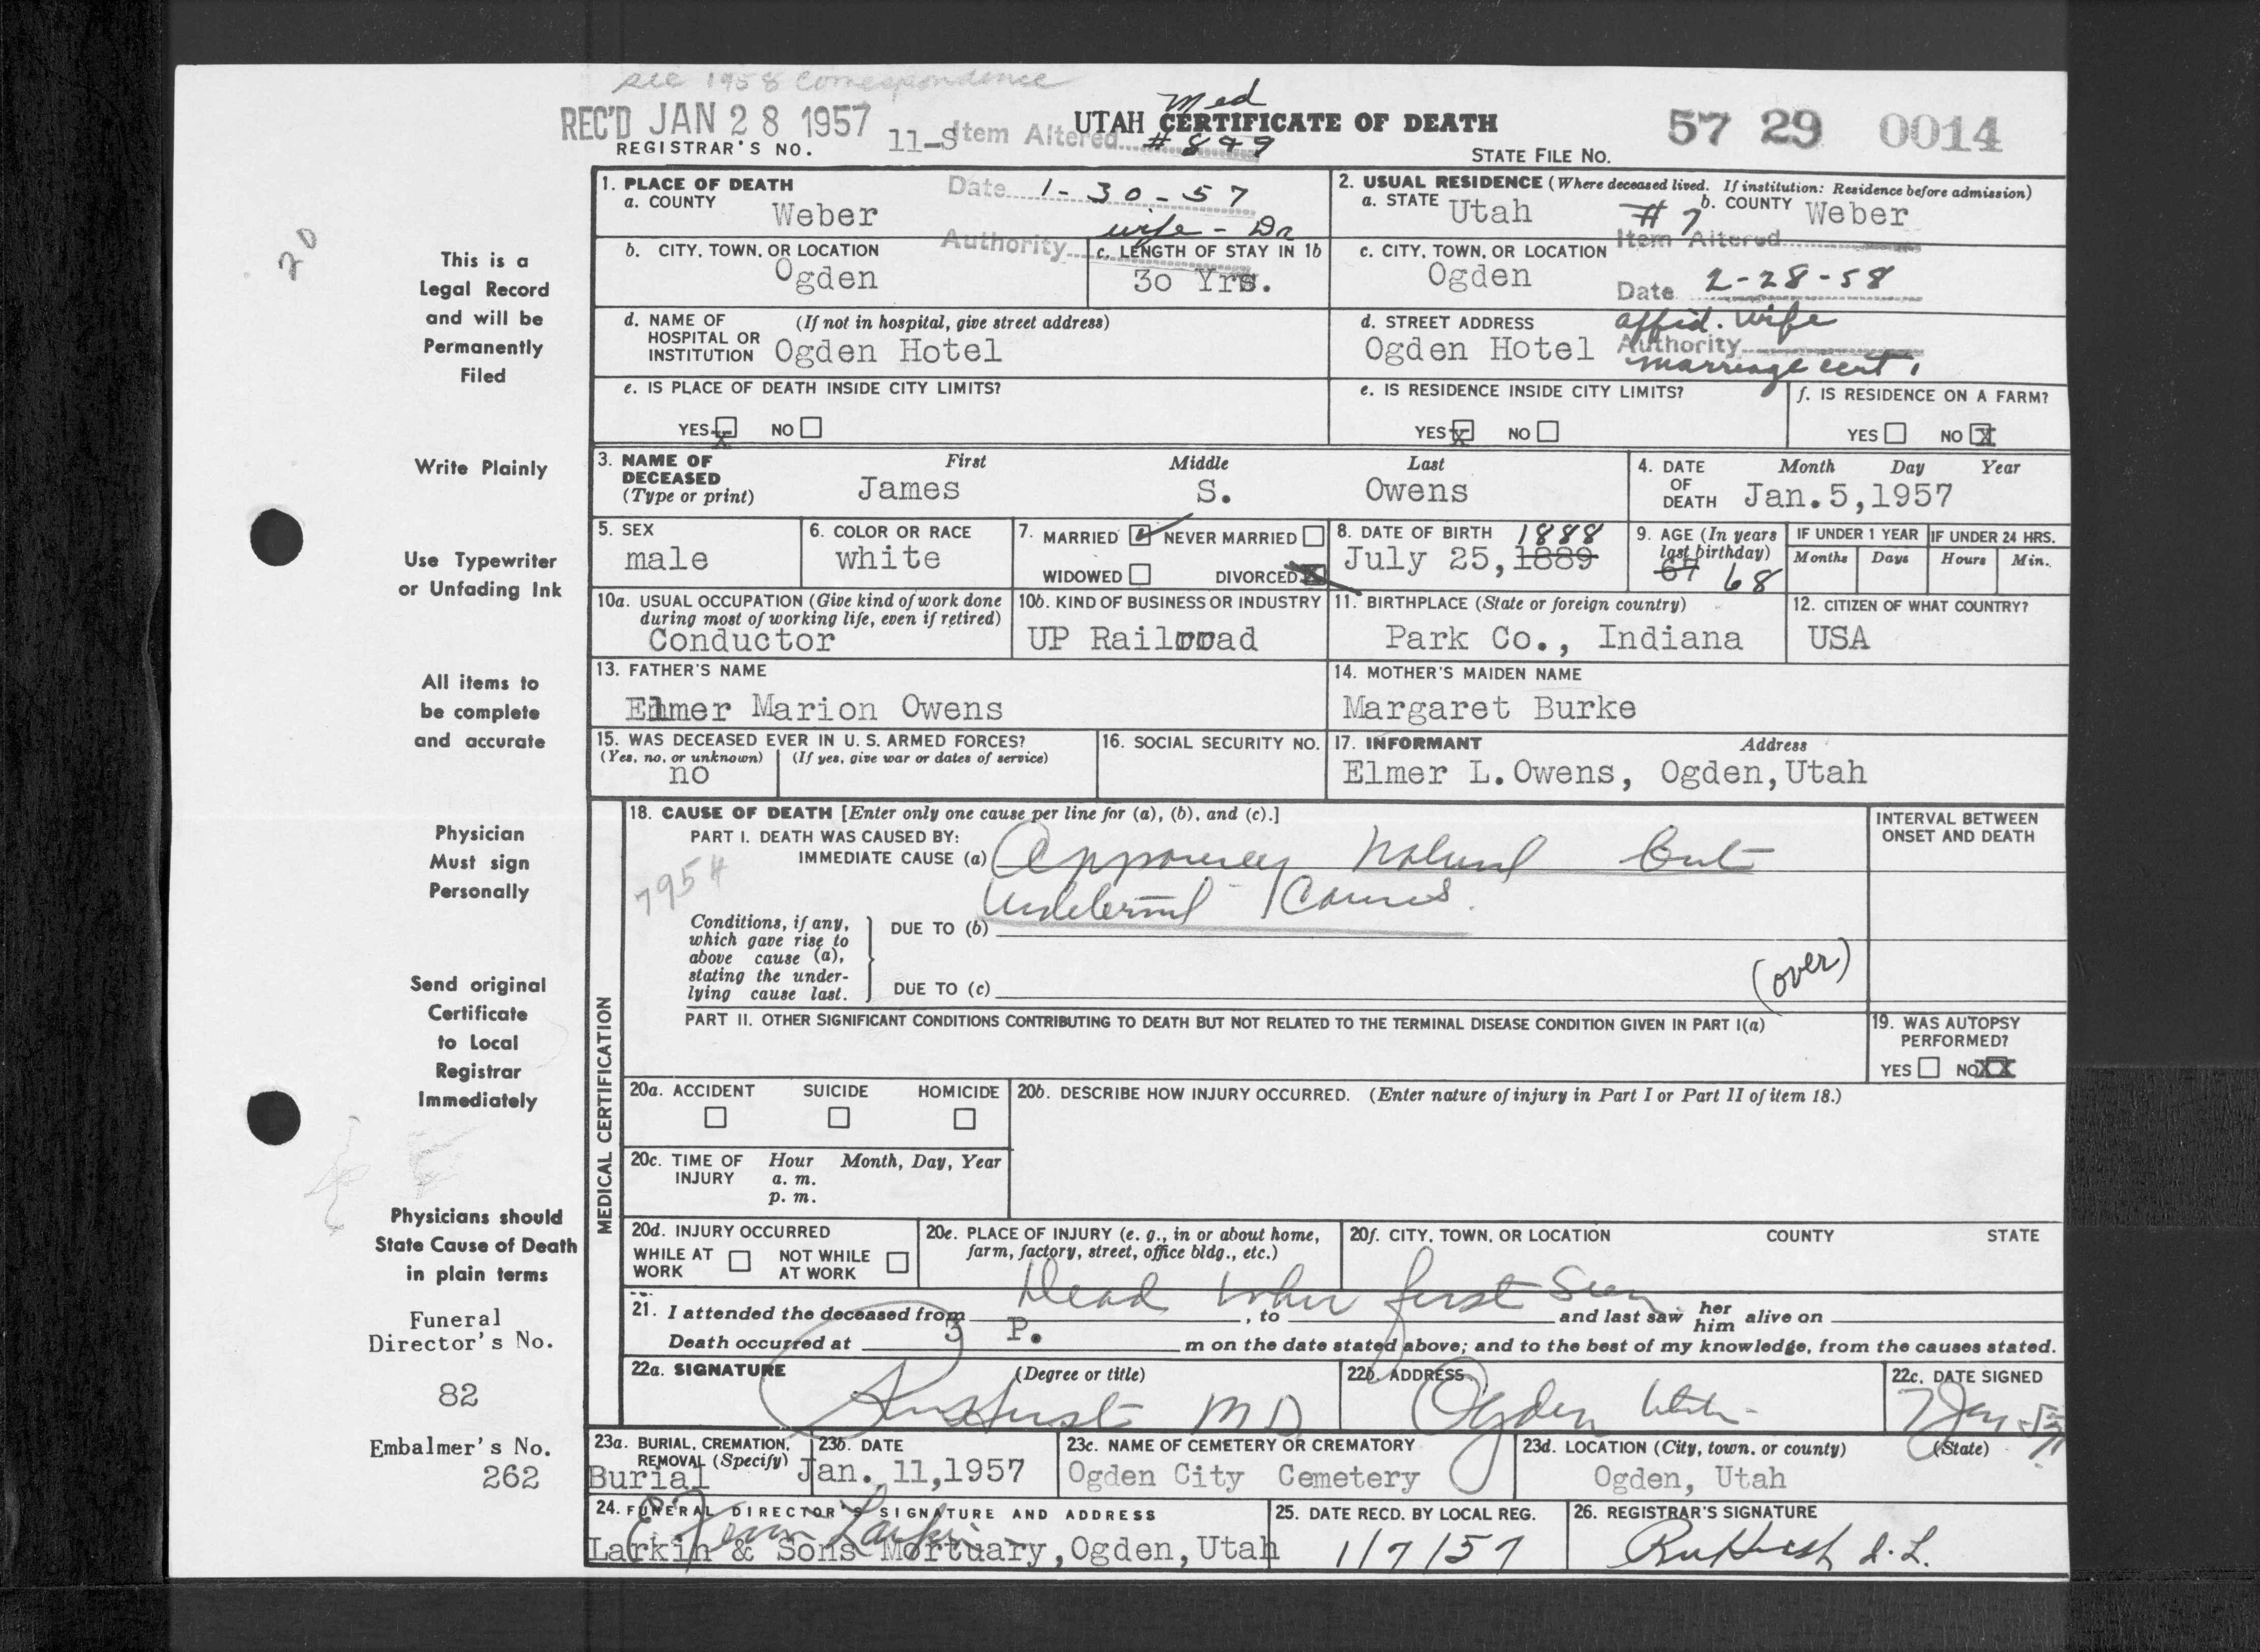 see 1958 correspondence
REC'D JAN 28 1957
Med
UTAH CERTIFICATE OF DEATH
57 29 0014
REGISTRAR'S NO. 11-S
Item Altered # 8 & 9
STATE FILE NO.
20
This is a
Legal Record
and will be
Permanently
Filed
Write Plainly
Use Typewriter
or Unfading Ink
All items to
be complete
and accurate
Physician
Must sign
Personally
Send original
Certificate
to Local
Registrar
Immediately
Physicians should
State Cause of Death
in plain terms
Funeral
Director's No.
82
Embalmer's No.
262
1. PLACE OF DEATH
a. COUNTY Weber
Date 1-30-57
Authority wife - Dr
2. USUAL RESIDENCE (Where deceased lived. If institution: Residence before admission)
a. STATE Utah
b. COUNTY Weber
Item Altered #7
b. CITY, TOWN, OR LOCATION
Ogden
c. LENGTH OF STAY IN 1b
30 Yrs.
c. CITY, TOWN, OR LOCATION
Ogden
Date 2-28-58
d. NAME OF HOSPITAL OR INSTITUTION (If not in hospital, give street address)
Ogden Hotel
d. STREET ADDRESS
Ogden Hotel
affid. wife
Authority
marriage cert.
e. IS PLACE OF DEATH INSIDE CITY LIMITS?
YES X NO
e. IS RESIDENCE INSIDE CITY LIMITS?
YES X NO
f. IS RESIDENCE ON A FARM?
YES NO X
3. NAME OF DECEASED (Type or print)
First Middle Last
James S. Owens
4. DATE OF DEATH Month Day Year
Jan. 5, 1957
5. SEX
male
6. COLOR OR RACE
white
7. MARRIED NEVER MARRIED
WIDOWED DIVORCED X
8. DATE OF BIRTH 1888
July 25, 1889
9. AGE (In years last birthday)
67 68
IF UNDER 1 YEAR
Months Days
IF UNDER 24 HRS.
Hours Min.
10a. USUAL OCCUPATION (Give kind of work done during most of working life, even if retired)
Conductor
10b. KIND OF BUSINESS OR INDUSTRY
UP Railroad
11. BIRTHPLACE (State or foreign country)
Park Co., Indiana
12. CITIZEN OF WHAT COUNTRY?
USA
13. FATHER'S NAME
Elmer Marion Owens
14. MOTHER'S MAIDEN NAME
Margaret Burke
15. WAS DECEASED EVER IN U. S. ARMED FORCES?
(Yes, no, or unknown) (If yes, give war or dates of service)
no
16. SOCIAL SECURITY NO.
17. INFORMANT Address
Elmer L. Owens, Ogden, Utah
MEDICAL CERTIFICATION
18. CAUSE OF DEATH [Enter only one cause per line for (a), (b), and (c).]
INTERVAL BETWEEN ONSET AND DEATH
PART I. DEATH WAS CAUSED BY:
IMMEDIATE CAUSE (a) Natural but
7954
Causes.
Conditions, if any, which gave rise to above cause (a), stating the underlying cause last.
DUE TO (b)
DUE TO (c)
(over)
PART II. OTHER SIGNIFICANT CONDITIONS CONTRIBUTING TO DEATH BUT NOT RELATED TO THE TERMINAL DISEASE CONDITION GIVEN IN PART I(a)
19. WAS AUTOPSY PERFORMED?
YES NO XX
20a. ACCIDENT SUICIDE HOMICIDE
20b. DESCRIBE HOW INJURY OCCURRED. (Enter nature of injury in Part I or Part II of item 18.)
20c. TIME OF INJURY Hour Month, Day, Year
a. m.
p. m.
20d. INJURY OCCURRED
WHILE AT WORK NOT WHILE AT WORK
20e. PLACE OF INJURY (e. g., in or about home, farm, factory, street, office bldg., etc.)
20f. CITY, TOWN, OR LOCATION COUNTY STATE
Dead when first seen
21. I attended the deceased from , to and last saw her him alive on
Death occurred at 3 P. m on the date stated above; and to the best of my knowledge, from the causes stated.
22a. SIGNATURE (Degree or title)
M D
22b. ADDRESS
Ogden Utah
22c. DATE SIGNED
7 Jan 57
23a. BURIAL, CREMATION, REMOVAL (Specify)
Burial
23b. DATE
Jan. 11, 1957
23c. NAME OF CEMETERY OR CREMATORY
Ogden City Cemetery
23d. LOCATION (City, town, or county) (State)
Ogden, Utah
24. FUNERAL DIRECTOR'S SIGNATURE AND ADDRESS
Larkin & Sons Mortuary, Ogden, Utah
25. DATE RECD. BY LOCAL REG.
1/7/57
26. REGISTRAR'S SIGNATURE